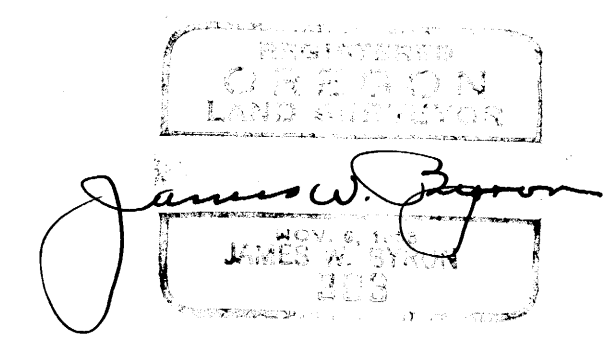 REGISTERED
OREGON
LAND SURVEYOR
James W. Byron
NOV. 6,
JAMES W. BYRON
203